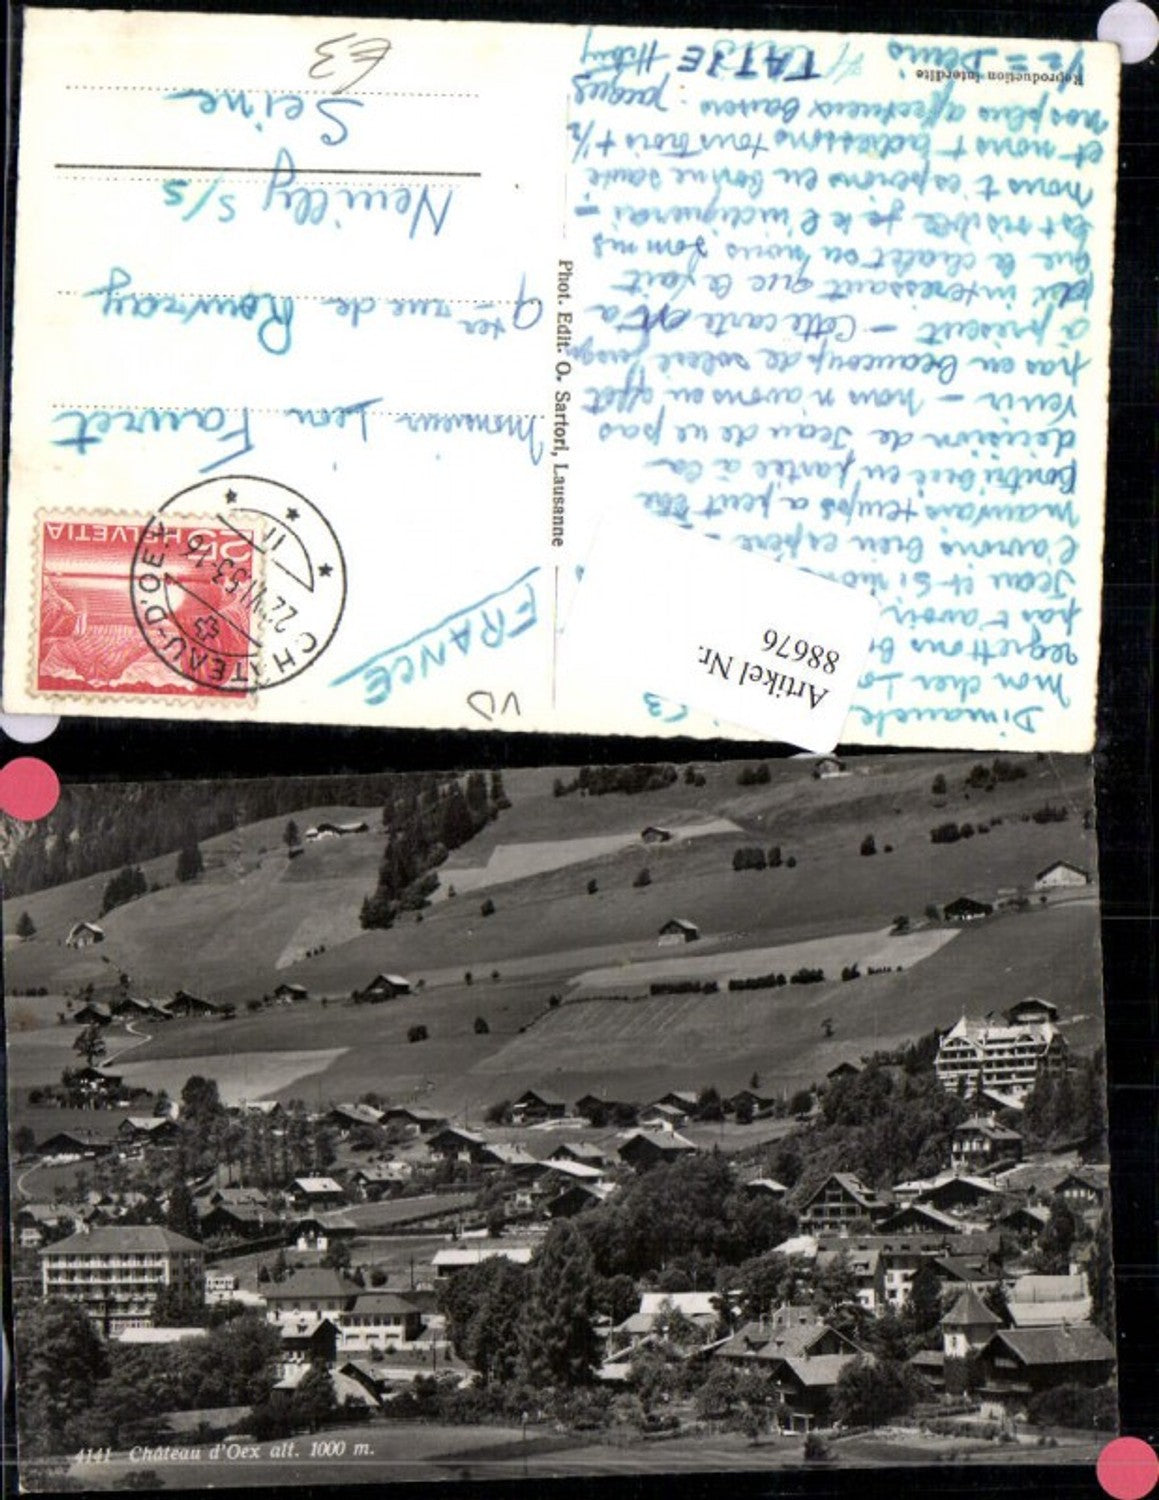 Dimanche
mon cher
regrettons
pas t'avoir
Jean et Si nous
l'avions bien espéré -
mauvais temps a peut être
contribué en partie à la
décision de Jean de ne pas
venir - nous n'avons en effet
pas eu beaucoup de soleil jusqu'
à présent - Cette carte n'a
d'intéressant que le fait
que le chalet où nous sommes
est visible je te l'indiquerai -
nous t'espérons en bonne santé
et nous t'adressons tous trois + 1/2
nos plus affectueux baisers. Jacques
TATJE
1/2 = Denis
Reproduction interdite
Phot. Edit. O. Sartori, Lausanne
Artikel Nr.
88676
VD
FRANCE
HELVETIA
25
CHÂTEAU-D'OEX
22.VI.53-16
11
Monsieur Léon Fauret
9 ter rue de Rouvray
Neuilly s/s
Seine
€3
4141 Château d'Oex alt. 1000 m.